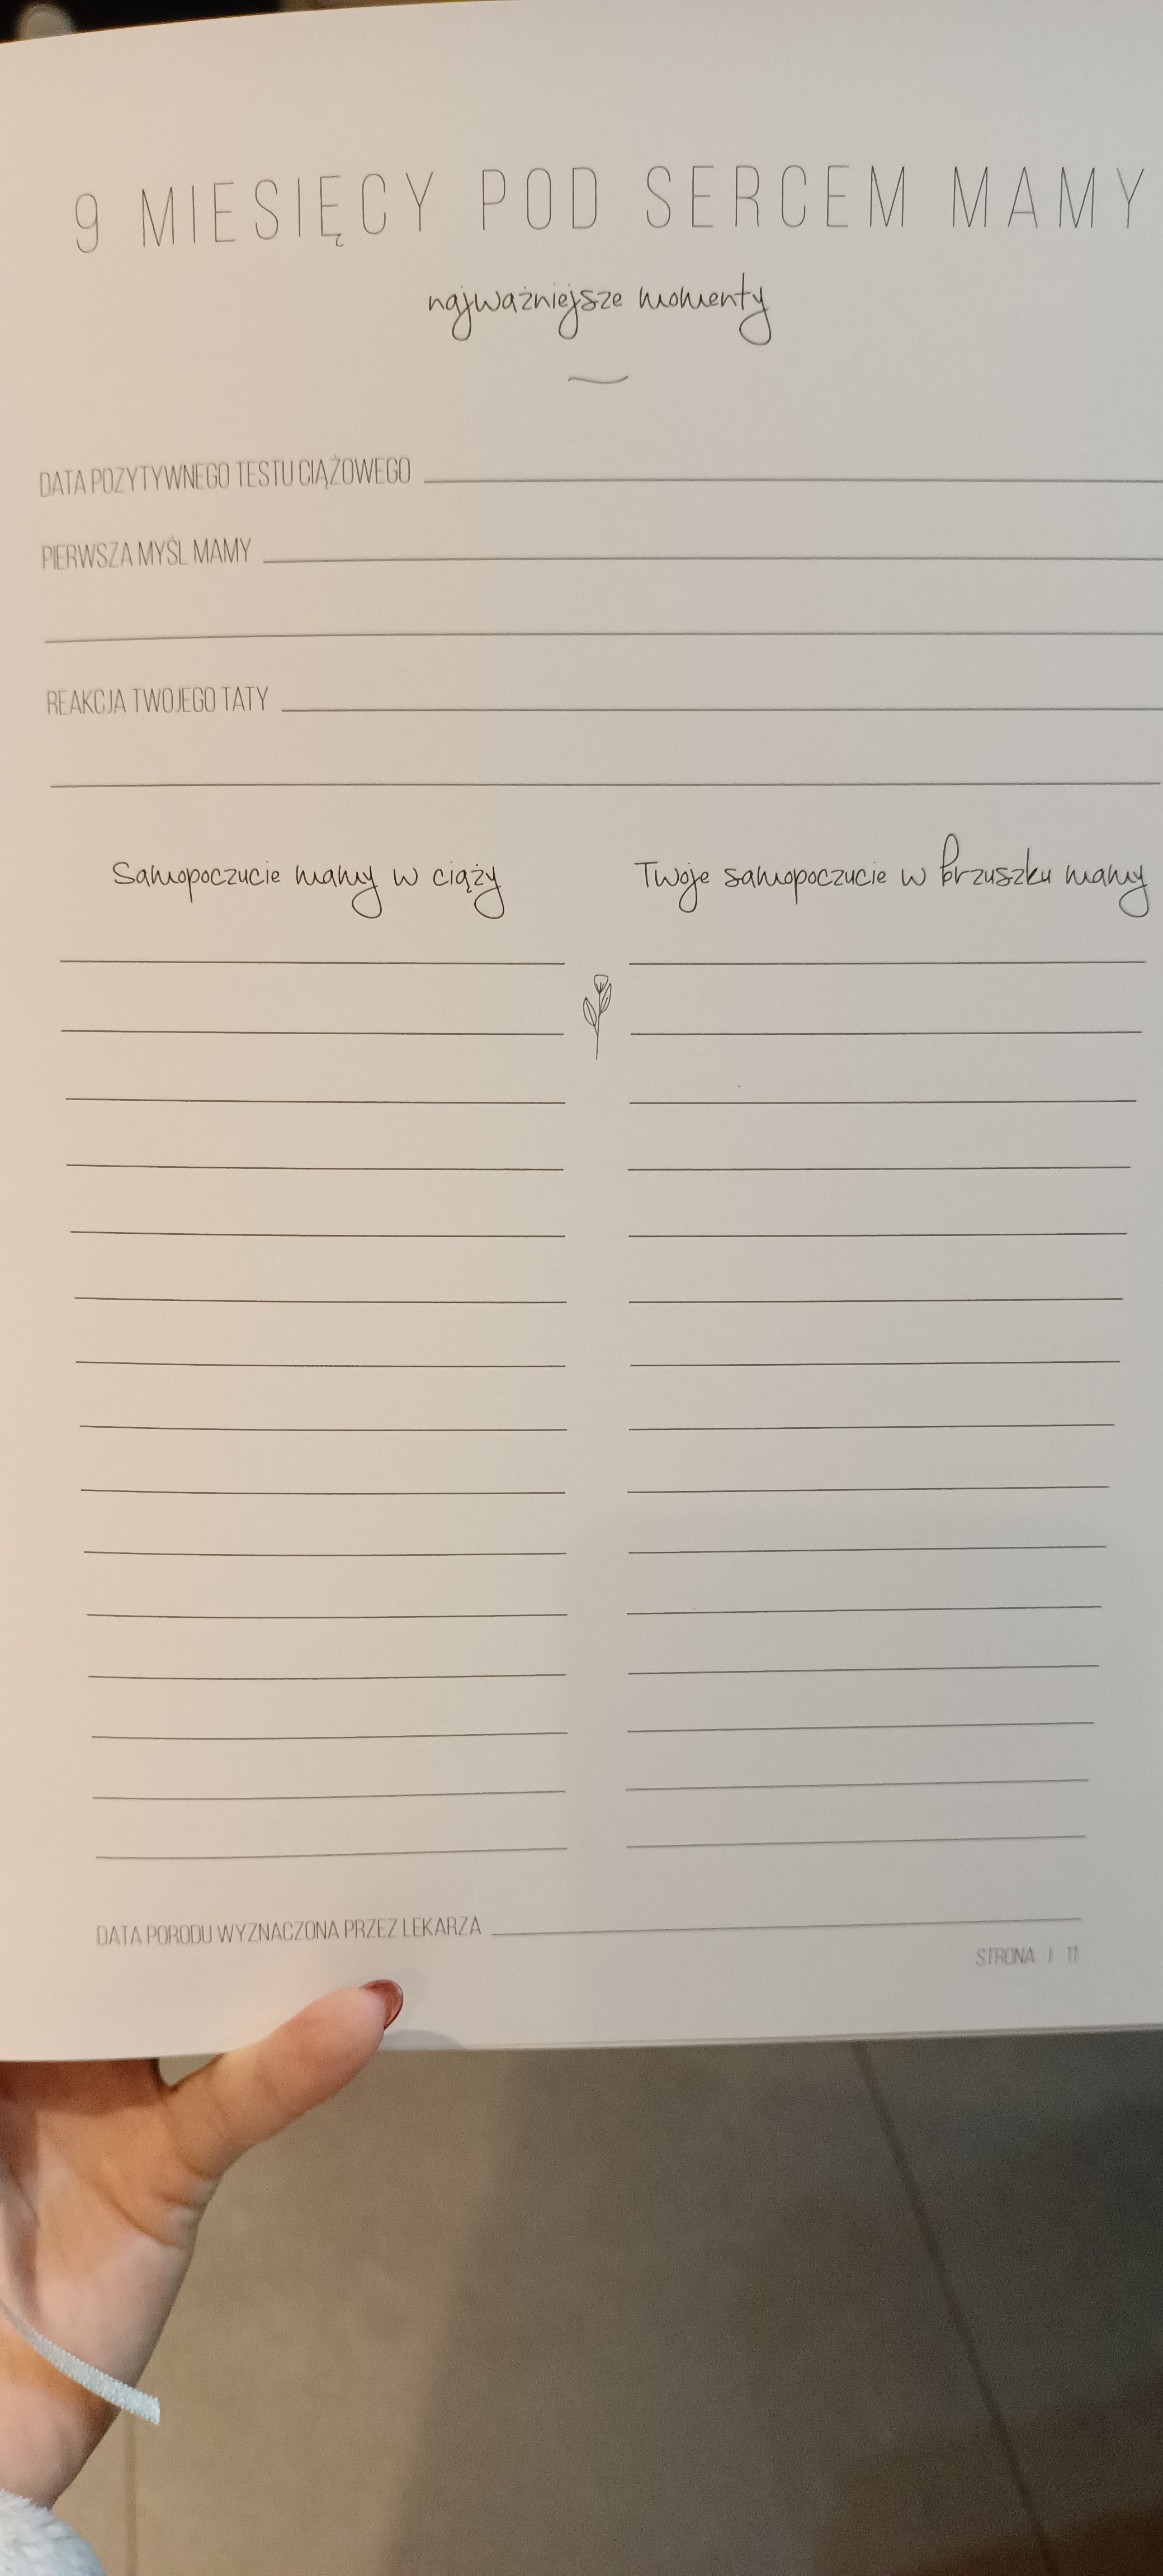 9 MIESIĘCY POD SERCEM MAMY
najważniejsze momenty
DATA POZYTYWNEGO TESTU CIĄŻOWEGO
PIERWSZA MYŚL MAMY
REAKCJA TWOJEGO TATY
Samopoczucie mamy w ciąży
Twoje samopoczucie w brzuszku mamy
DATA PORODU WYZNACZONA PRZEZ LEKARZA
STRONA | 11